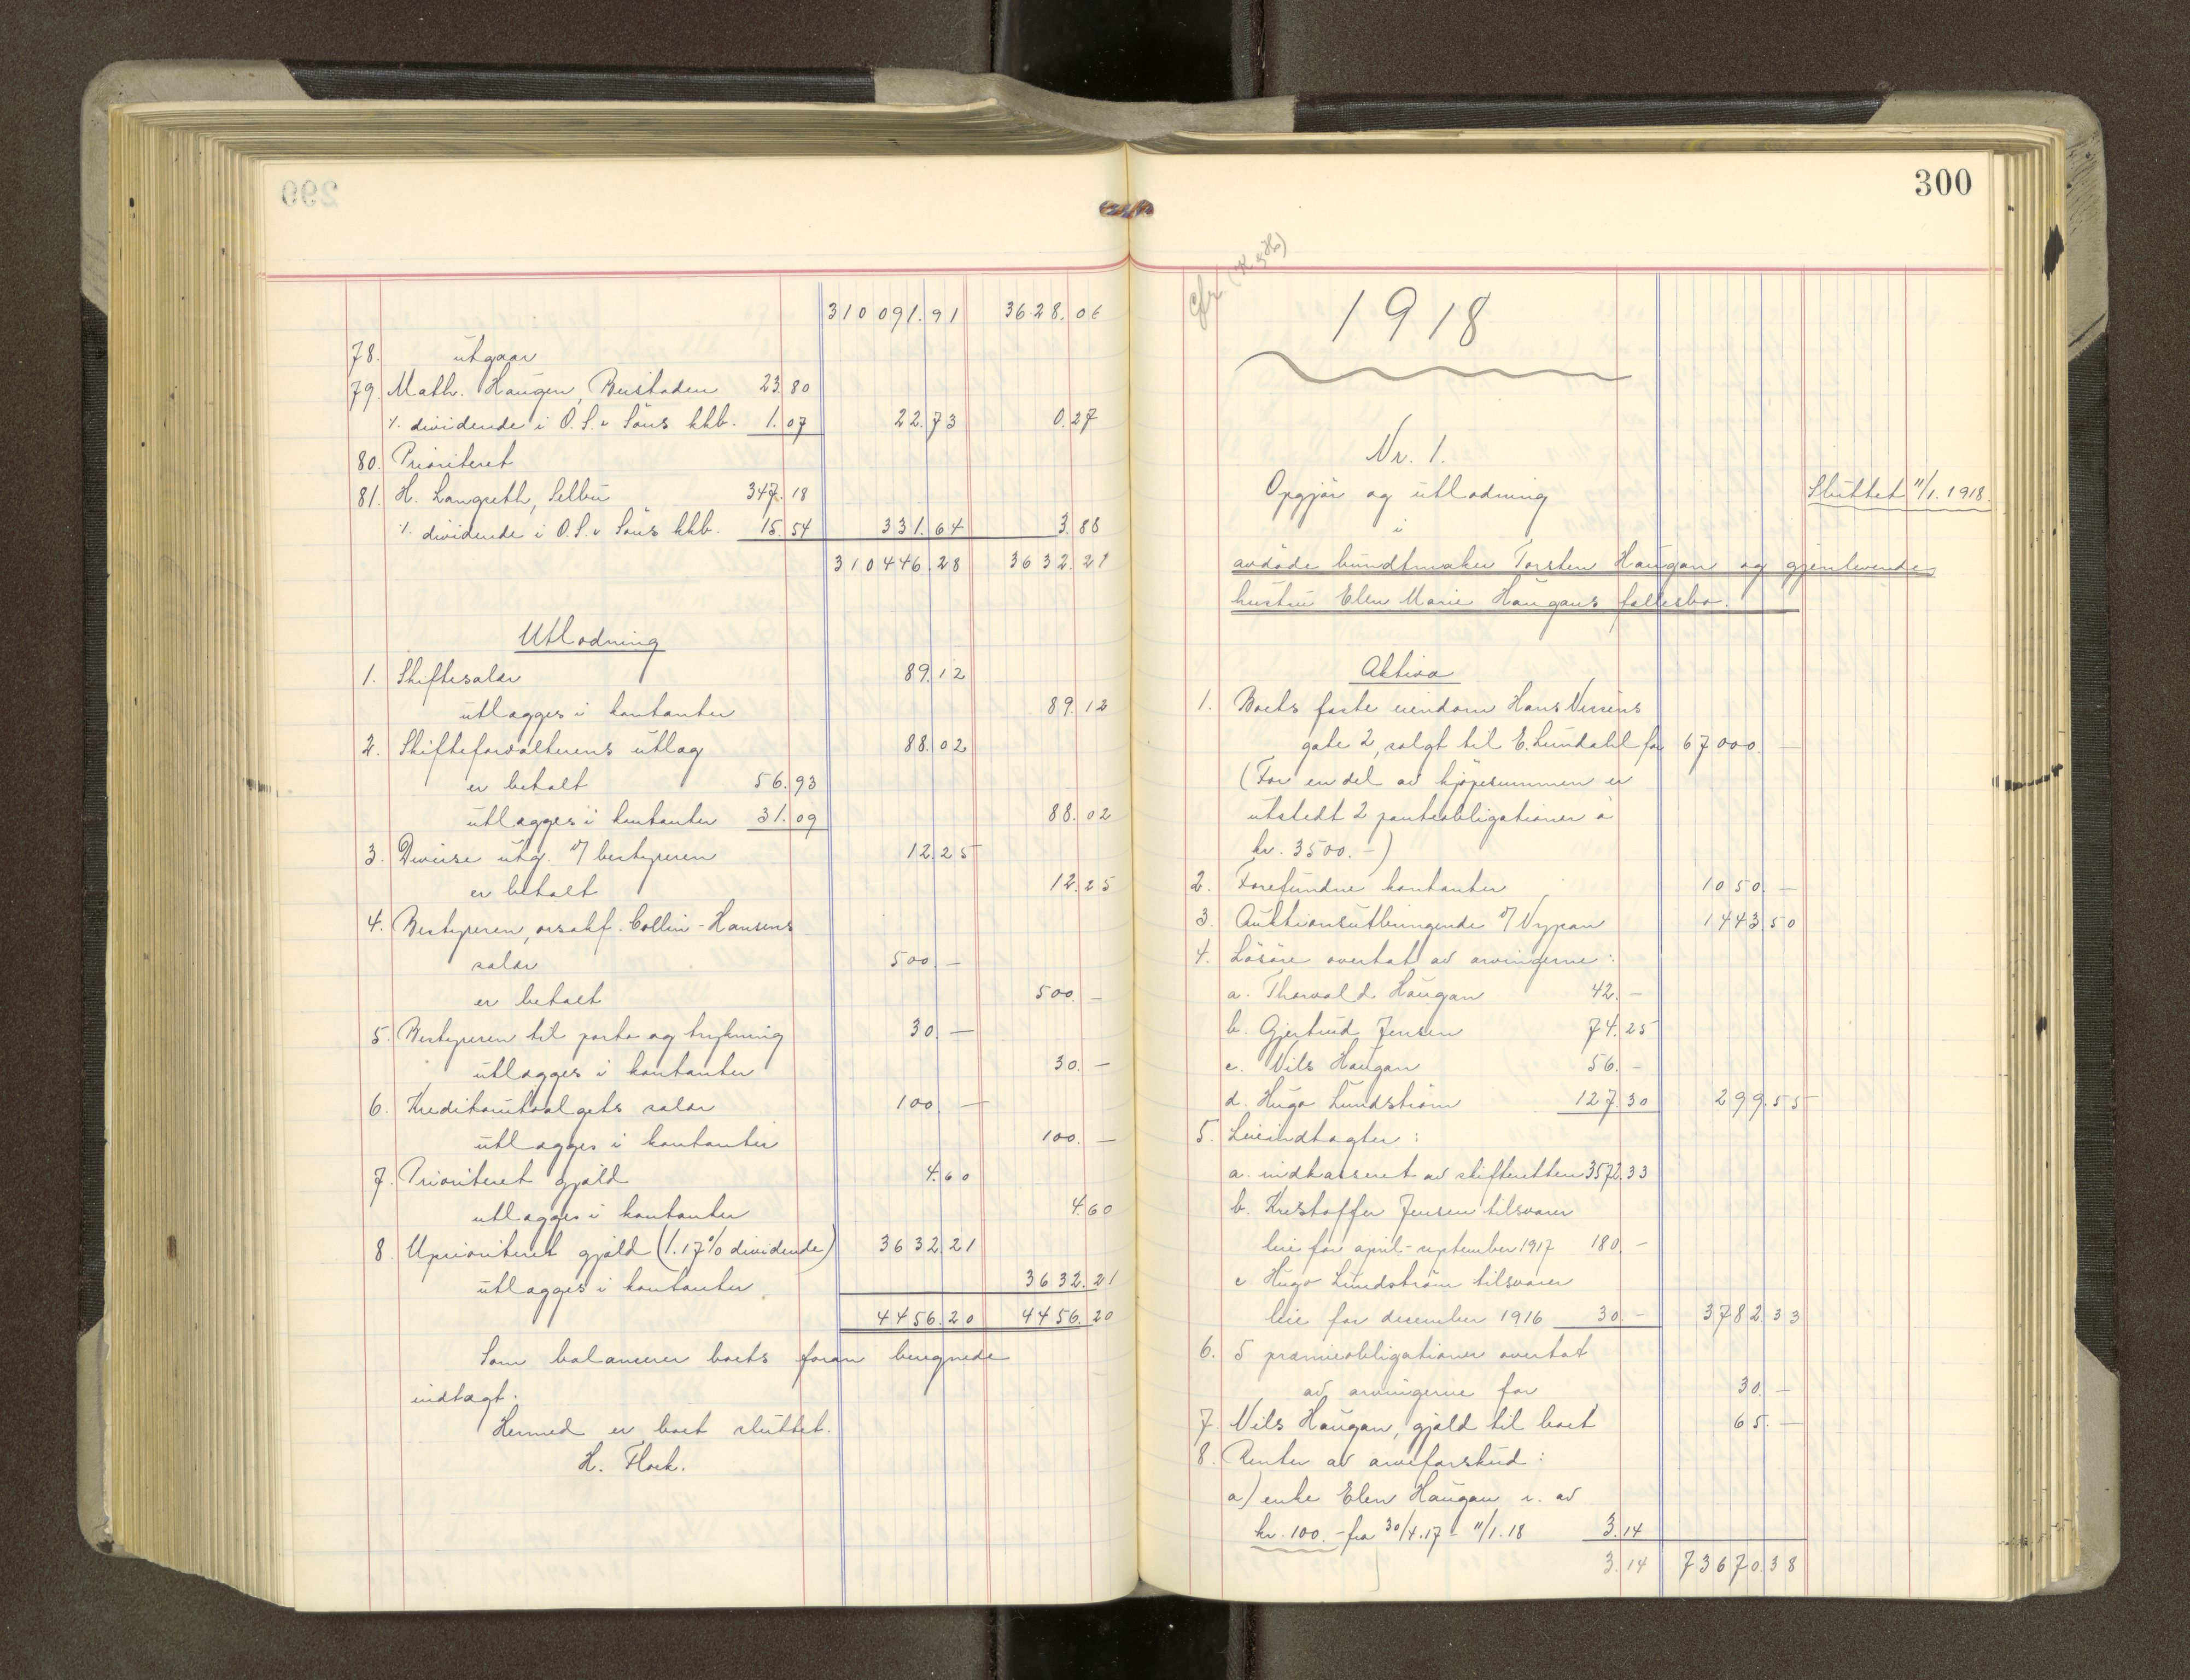 299
310 091.91 3628.06
78. utgaar
79. Math. Haugen, Beistaden 23.80
÷ dividende i O. S. & Söns khb. 1.07 22.73 0.27
80. Prioritert
81. H. Langseth, Selbu 347.18
÷ dividende i O. S. & Söns khb. 15.54 331.64 3.88
310446.28 3632.21
Utlodning
1. Skiftesalær 89.12
utlægges i kontanter 89.12
2. Skifteforvalterens utlæg 88.02
er betalt 56.93
utlægges i kontanter 31.09 88.02
3. Diverse utg. v/ bestyreren 12.25
er betalt 12.25
4. Bestyreren, orsakf. Collin-Hansens
salær 500.—
er betalt 500.—
5. Bestyreren til porto og trykning 30.—
utlægges i kontanter 30.—
6. Kreditorutvalgets salær 100.—
utlægges i kontanter 100.—
7. Prioritert gjæld 4.60
utlægges i kontanter 4.60
8. Uprioritert gjæld (1.17% dividende) 3632.21
utlægges i kontanter 3632.21
4456.20 4456.20
Som balancerer boets foran beregnede
indtægt.
Hermed er boet sluttet.
H. Floek.
300
cfr.
1918
Nr. 1.
Opgjör og utlodning
Sluttet 11/1. 1918.
i
avdöde bundtmaker Torsten Haugan og gjenlevende
hustru Elen Marie Haugans fællesbo.
Aktiva
1. Boets faste eiendom Hans Nissens
gate 2, solgt til E. Lundahl for 67000.—
(For en del av kjöpesummen er
utstedt 2 panteobligationer à
kr. 3500.—)
2. Forefundne kontanter 1050.—
3. Auktionsutbringende v/ Nypan 1443.50
4. Lösöre overtat av arvingerne:
a. Thorvald Haugan 42.—
b. Gjertrud Jensen 74.25
c. Nils Haugan 56.—
d. Hugo Lundström 127.30 299.55
5. Leieindtægter:
a. indkasseret av skifteretten 3572.33
b. Kristoffer Jensen tilsvarer
leie for april-september 1917 180.—
c Hugo Lundström tilsvarer
leie for desember 1916 30.— 3782.33
6. 5 præmieobligationer overtat
av arvingerne for 30.—
7. Nils Haugan, gjæld til boet 65.—
8. Renter av arveforskud:
a) enke Elen Haugan r. av
kr. 100.— fra 30/4.17 - 11/1.18 3.14
3.14 73670.38